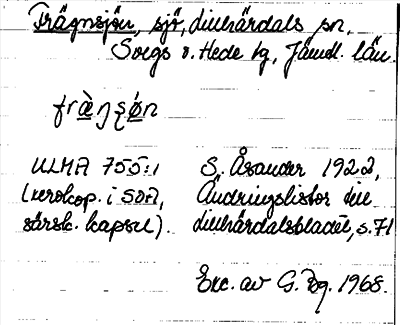 Frägnsjön, sjö, Lillhärdals sn,
Svegs o. Hede tg, Jämtl. län.
fræ̀ŋʂø̀n
ULMA 755:1 S. Åsander 1922,
(xerokop. i SOA, Ändringslistor till
särsk. kapsel). Lillhärdalsbladet, s. 71
Exc. av G. Bg. 1968.